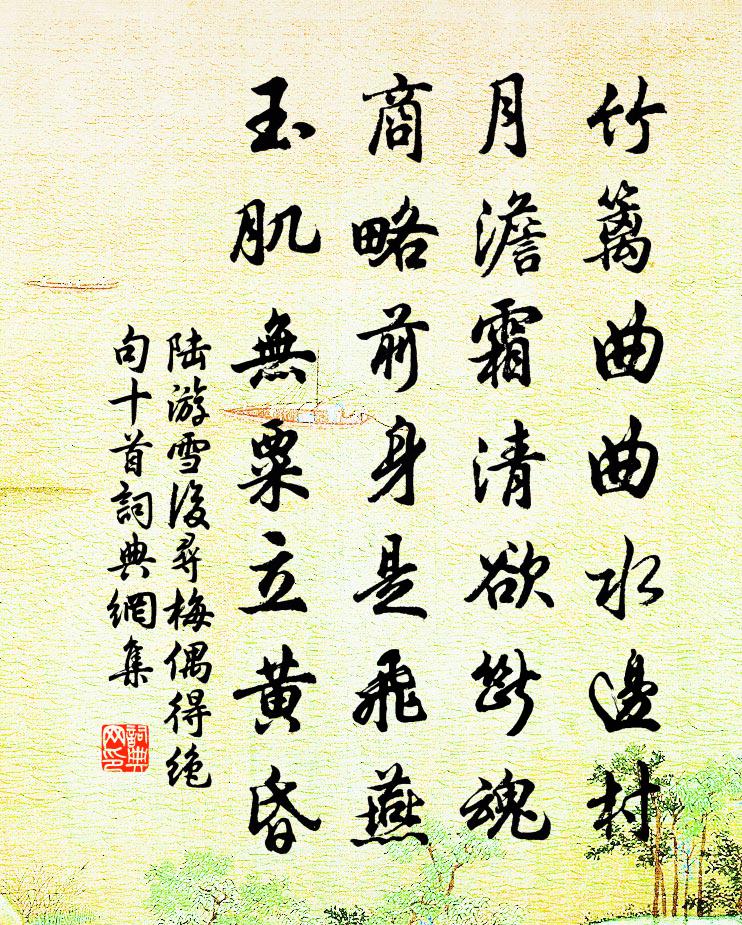 竹籬曲曲水邊村
月澹霜清欲斷魂
商略前身是飛燕
玉肌無粟立黄昏
陆游雪後尋梅偶得绝
句十首詞典網集
詞典网印